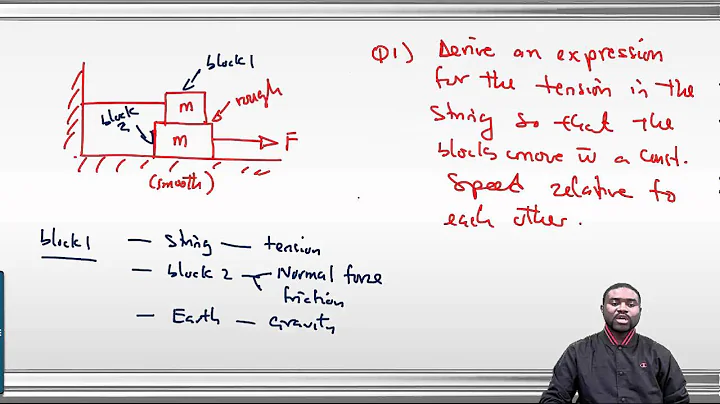 Q1) Derive an expression
for the tension in the
string so that the
blocks move w̄ a const.
speed relative to
each other.
block1
rough
block
2
m
m
F
(smooth)
block1 — string — tension
— block 2 — Normal force
friction
— Earth — gravity